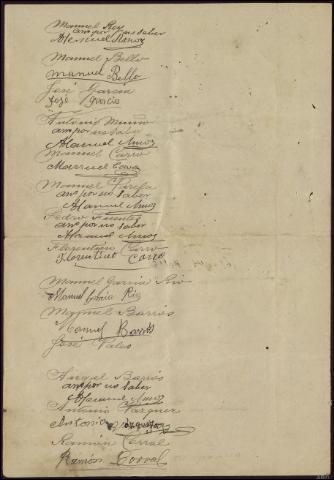 Manuel Rey
am.º por no saber
Manuel Muñoz
Manuel Bello
Manuel Bello
José García
José García
Antonio Muiño
am.º por no saber
Manuel Muñoz
Manuel Carro
Manuel
Manuel Varela
am.º por no saber
Manuel Muñoz
Pedro Fuentes
am.º por no saber
Manuel Muñoz
Florentino Carro
Florentino Carro
Manuel García Rio
Manuel García Rio
Manuel Barrós
Manuel Barrós
José
Angel Barrós
am.º por no saber
Manuel Muñoz
Antonio Vazquez
Antonio Vazquez
Ramón Corral
Ramón Corral